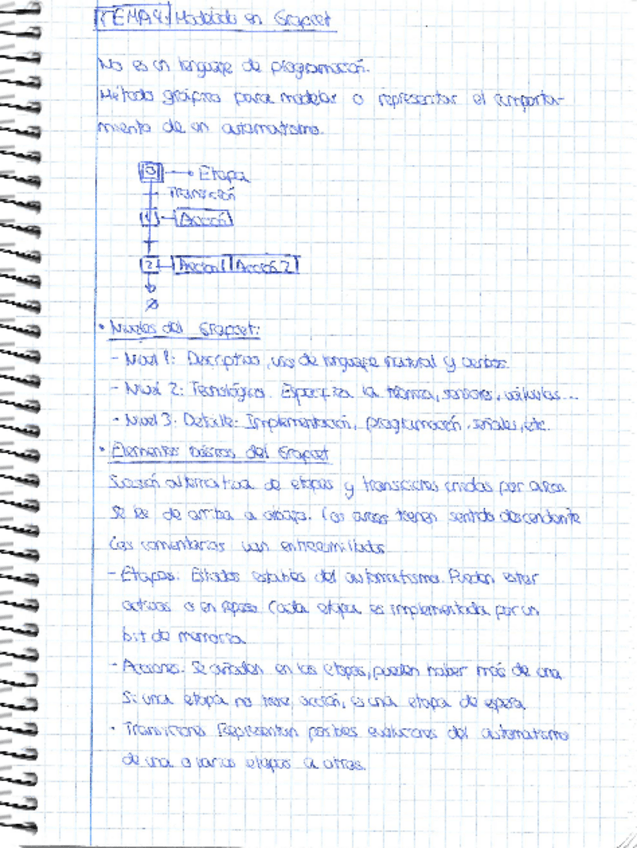 TEMA 4: Modelado en Grafcet
No es un lenguaje de programación.
Método gráfico para modelar o representar el comporta-
miento de un automatismo.
Etapa
Transición
1 Acción
2 Acción 1 Acción 2
• Niveles del Grafcet:
- Nivel 1: Descriptivo, uso de lenguaje natural y verbos.
- Nivel 2: Tecnológico. Especifica la técnica, sensores, válvulas...
- Nivel 3: Detalle: Implementación, programación, señales, etc.
• Elementos básicos del Grafcet
Sucesión alternativa de etapas y transiciones unidas por arcos.
Se lee de arriba a abajo. Los arcos tienen sentido descendente
Los comentarios van entrecomillados
- Etapas: Estados estables del automatismo. Pueden estar
activas o en reposo. Cada etapa es implementada por un
bit de memoria
- Acciones. Se añaden en las etapas, pueden haber más de una
Si una etapa no tiene acción, es una etapa de espera
- Transiciones Representan posibles evoluciones del automatismo
de una o varias etapas a otras.